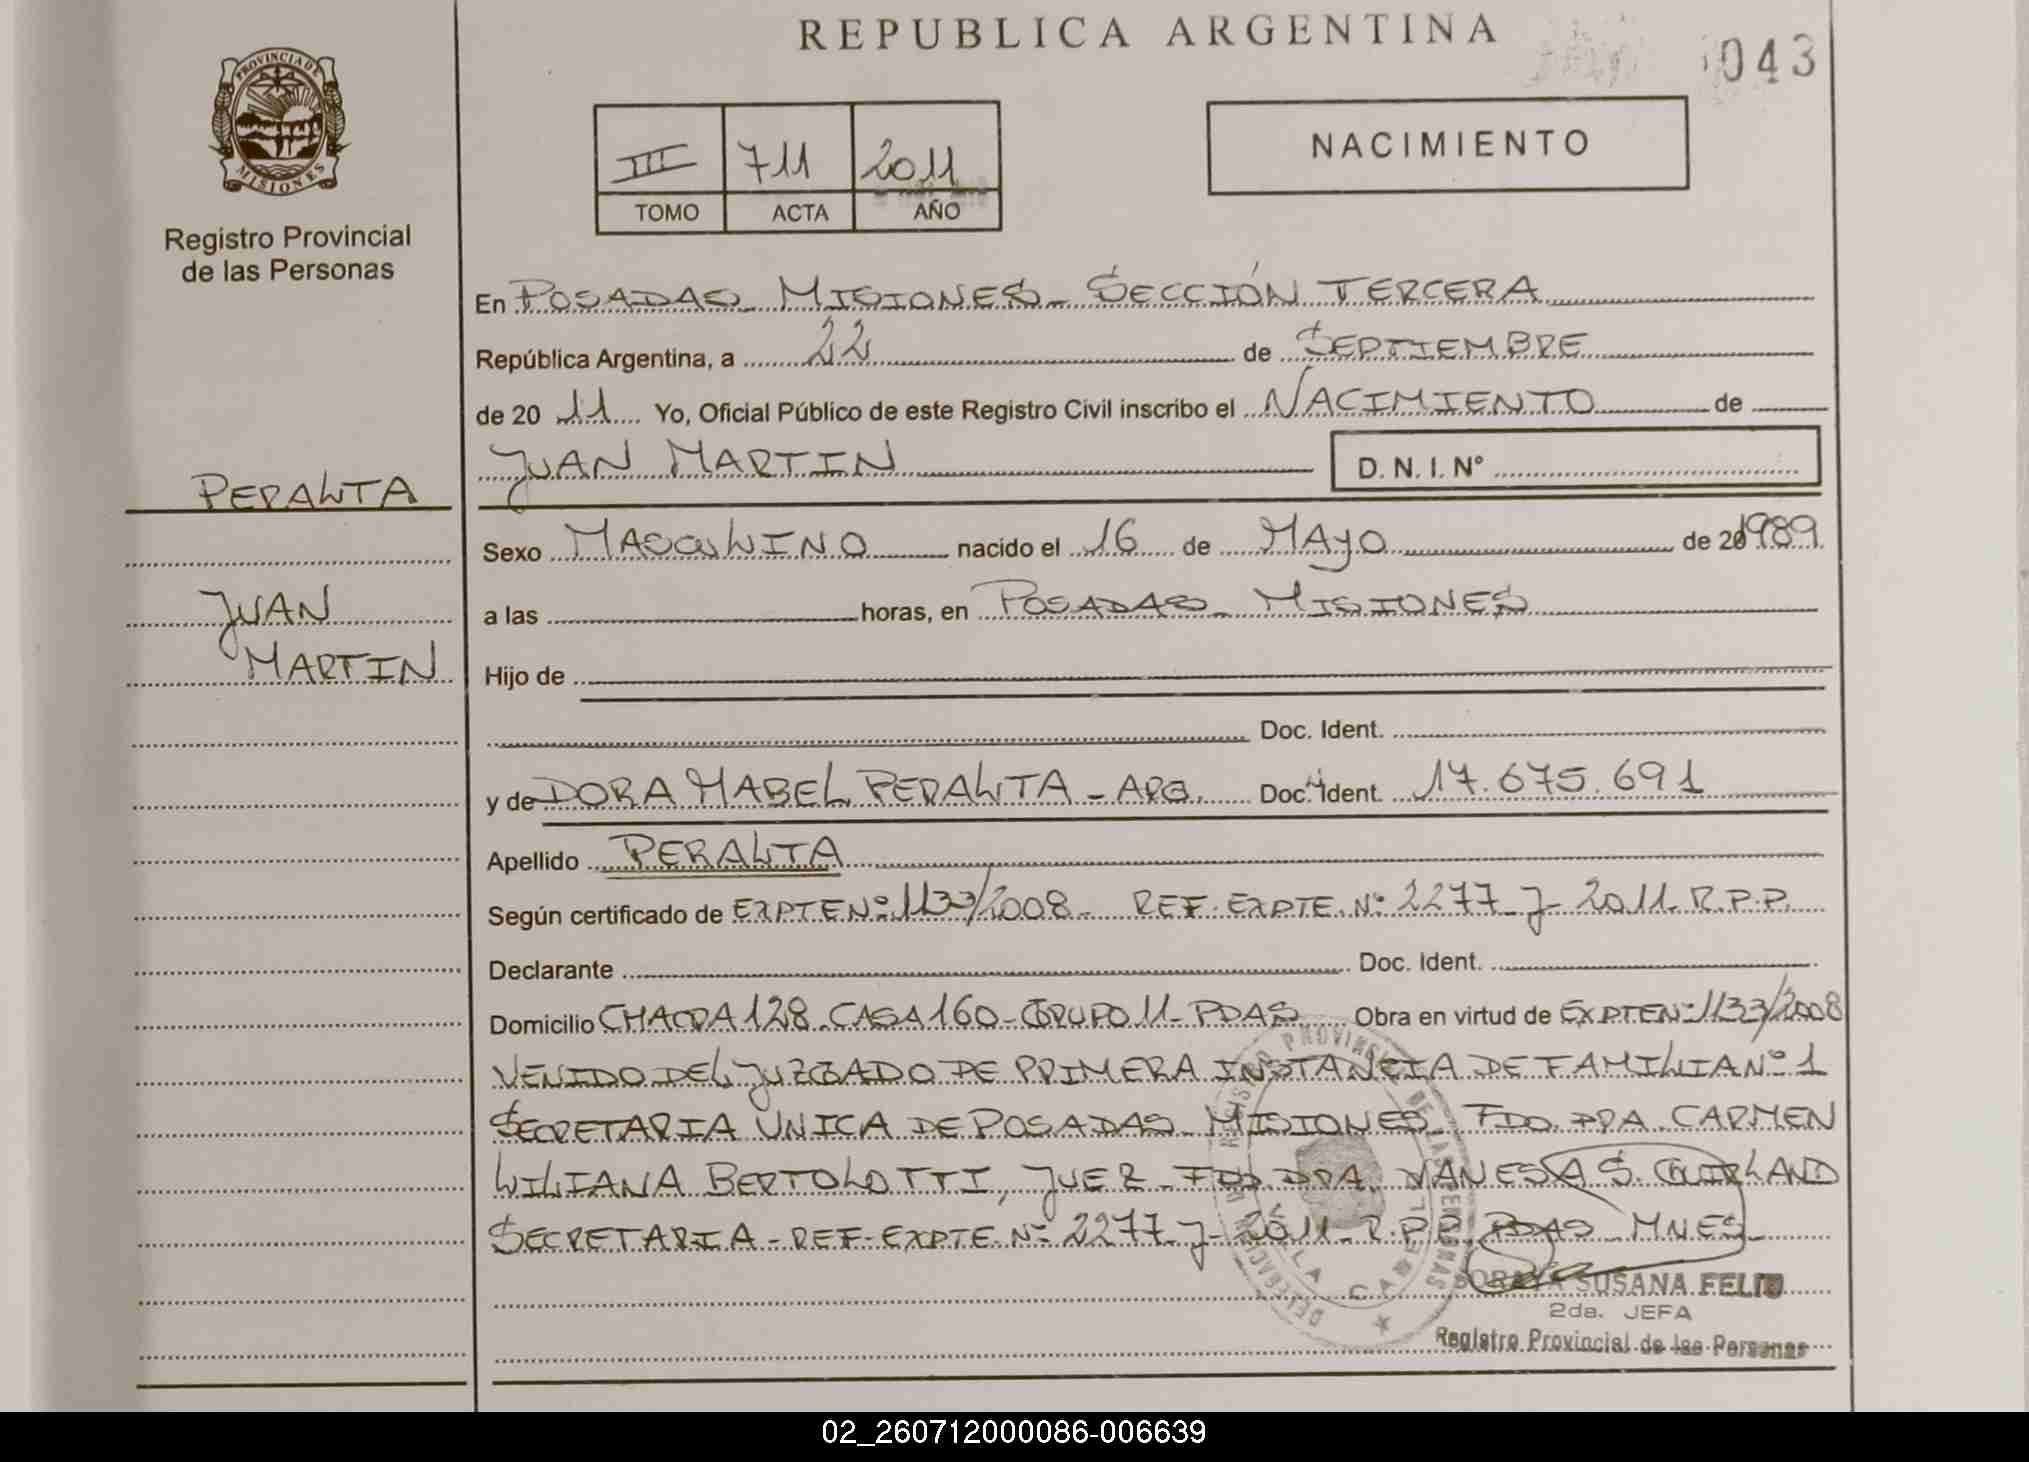 REPUBLICA ARGENTINA
043
PROVINCIA DE
MISIONES
Registro Provincial
de las Personas
III 711 2011
TOMO ACTA AÑO
NACIMIENTO
En POSADAS MISIONES - SECCIÓN TERCERA
República Argentina, a 22 de SEPTIEMBRE
de 20 11 Yo, Oficial Público de este Registro Civil inscribo el NACIMIENTO de
JUAN MARTIN D. N. I. Nº
PERALTA
JUAN
MARTIN
Sexo MASCULINO nacido el 16 de MAYO de 20 1989
a las horas, en POSADAS - MISIONES
Hijo de
Doc. Ident.
y de DORA MABEL PERALTA - ARG. Doc. Ident. 17.675.691
Apellido PERALTA
Según certificado de EXPTE Nº 1133/2008 - REF. EXPTE. Nº 2277-J-2011-R.P.P.
Declarante Doc. Ident.
Domicilio CHACRA 128 - CASA 160 - GRUPO 11 - PDAS Obra en virtud de EXPTE Nº 1133/2008
VENIDO DEL JUZGADO DE PRIMERA INSTANCIA DE FAMILIA Nº 1
SECRETARIA UNICA DE POSADAS - MISIONES - FDO DRA. CARMEN
LILIANA BERTOLOTTI, JUEZ - FDO DRA. VANESA S. GUIRLAND
SECRETARIA - REF. EXPTE. Nº 2277-J-2011-R.P.P. PDAS - MNES -
SORAYA SUSANA FELIU
2da. JEFA
Registro Provincial de las Personas
02_260712000086-006639